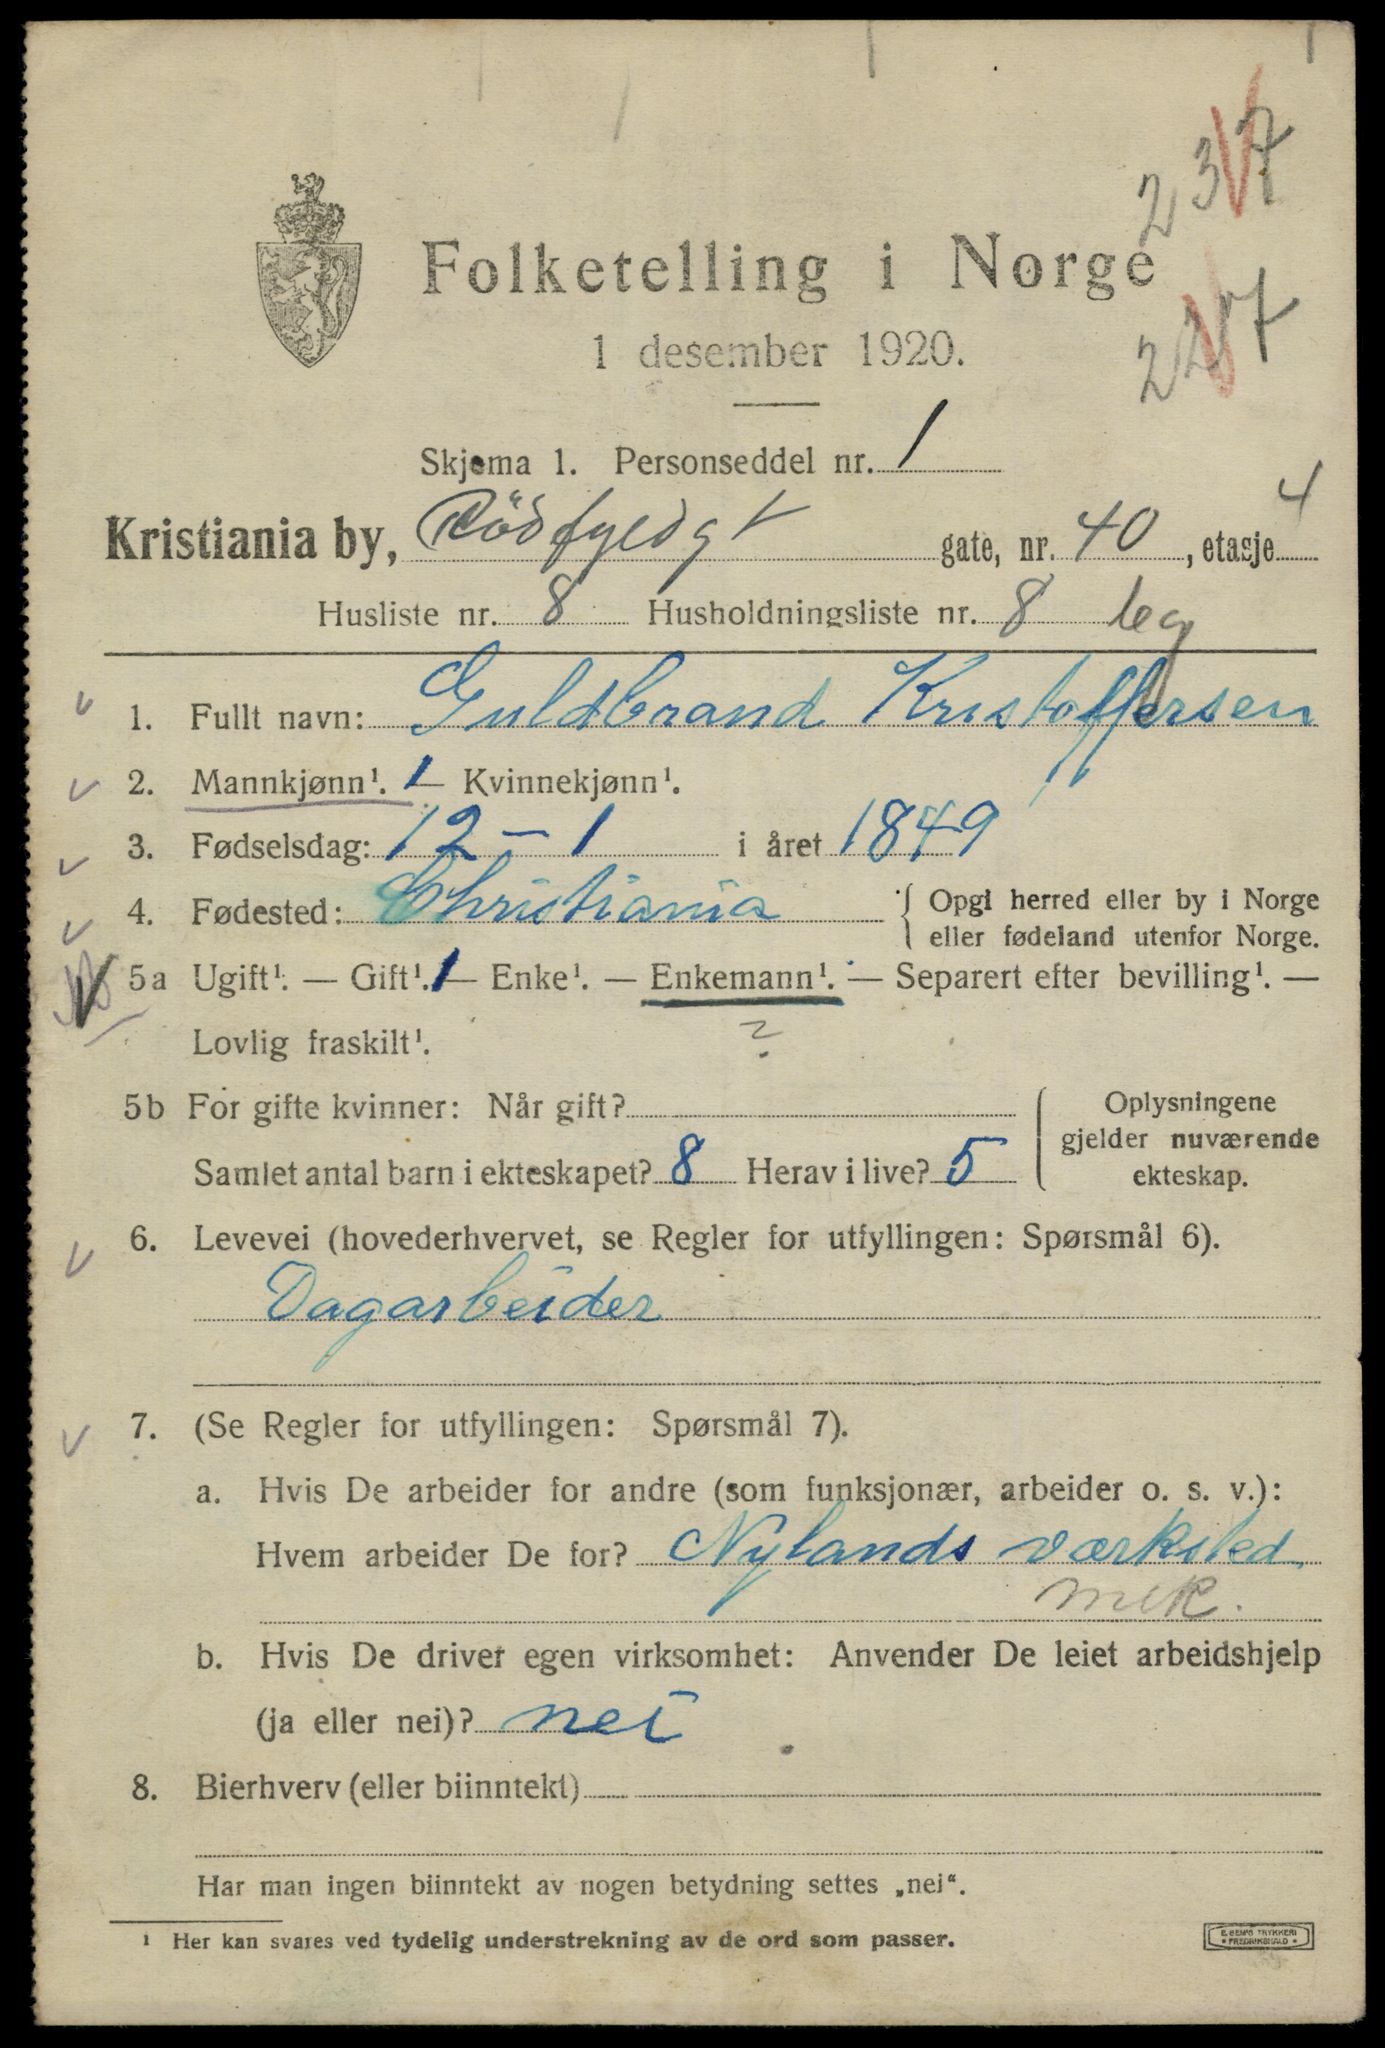 237
Folketelling i Norge
227
1 desember 1920.
Skjema 1. Personseddel nr. 1
Kristiania by, Rödfyldgt gate, nr. 40, etasje 4
Husliste nr. 8 Husholdningsliste nr. 8 leg
1. Fullt navn: Guldbrand Kristoffersen
2. Mannkjønn¹. 1 — Kvinnekjønn¹.
3. Fødselsdag: 12 – 1 i året 1849
4. Fødested: Christiania { Opgi herred eller by i Norge
eller fødeland utenfor Norge.
5a Ugift¹. — Gift¹. 1 — Enke¹. — Enkemann¹. — Separert efter bevilling¹. —
Lovlig fraskilt¹. ?
5b For gifte kvinner: Når gift? Oplysningene
gjelder nuværende
Samlet antal barn i ekteskapet? 8 Herav i live? 5 ekteskap.
6. Levevei (hovederhvervet, se Regler for utfyllingen: Spørsmål 6).
Dagarbeider
7. (Se Regler for utfyllingen: Spørsmål 7).
a. Hvis De arbeider for andre (som funksjonær, arbeider o. s. v.):
Hvem arbeider De for? Nylands værksted
mek.
b. Hvis De driver egen virksomhet: Anvender De leiet arbeidshjelp
(ja eller nei)? nei
8. Bierhverv (eller biinntekt)
Har man ingen biinntekt av nogen betydning settes „nei“.
¹ Her kan svares ved tydelig understrekning av de ord som passer.
E. SEM'S TRYKKERI
FREDRIKSHALD